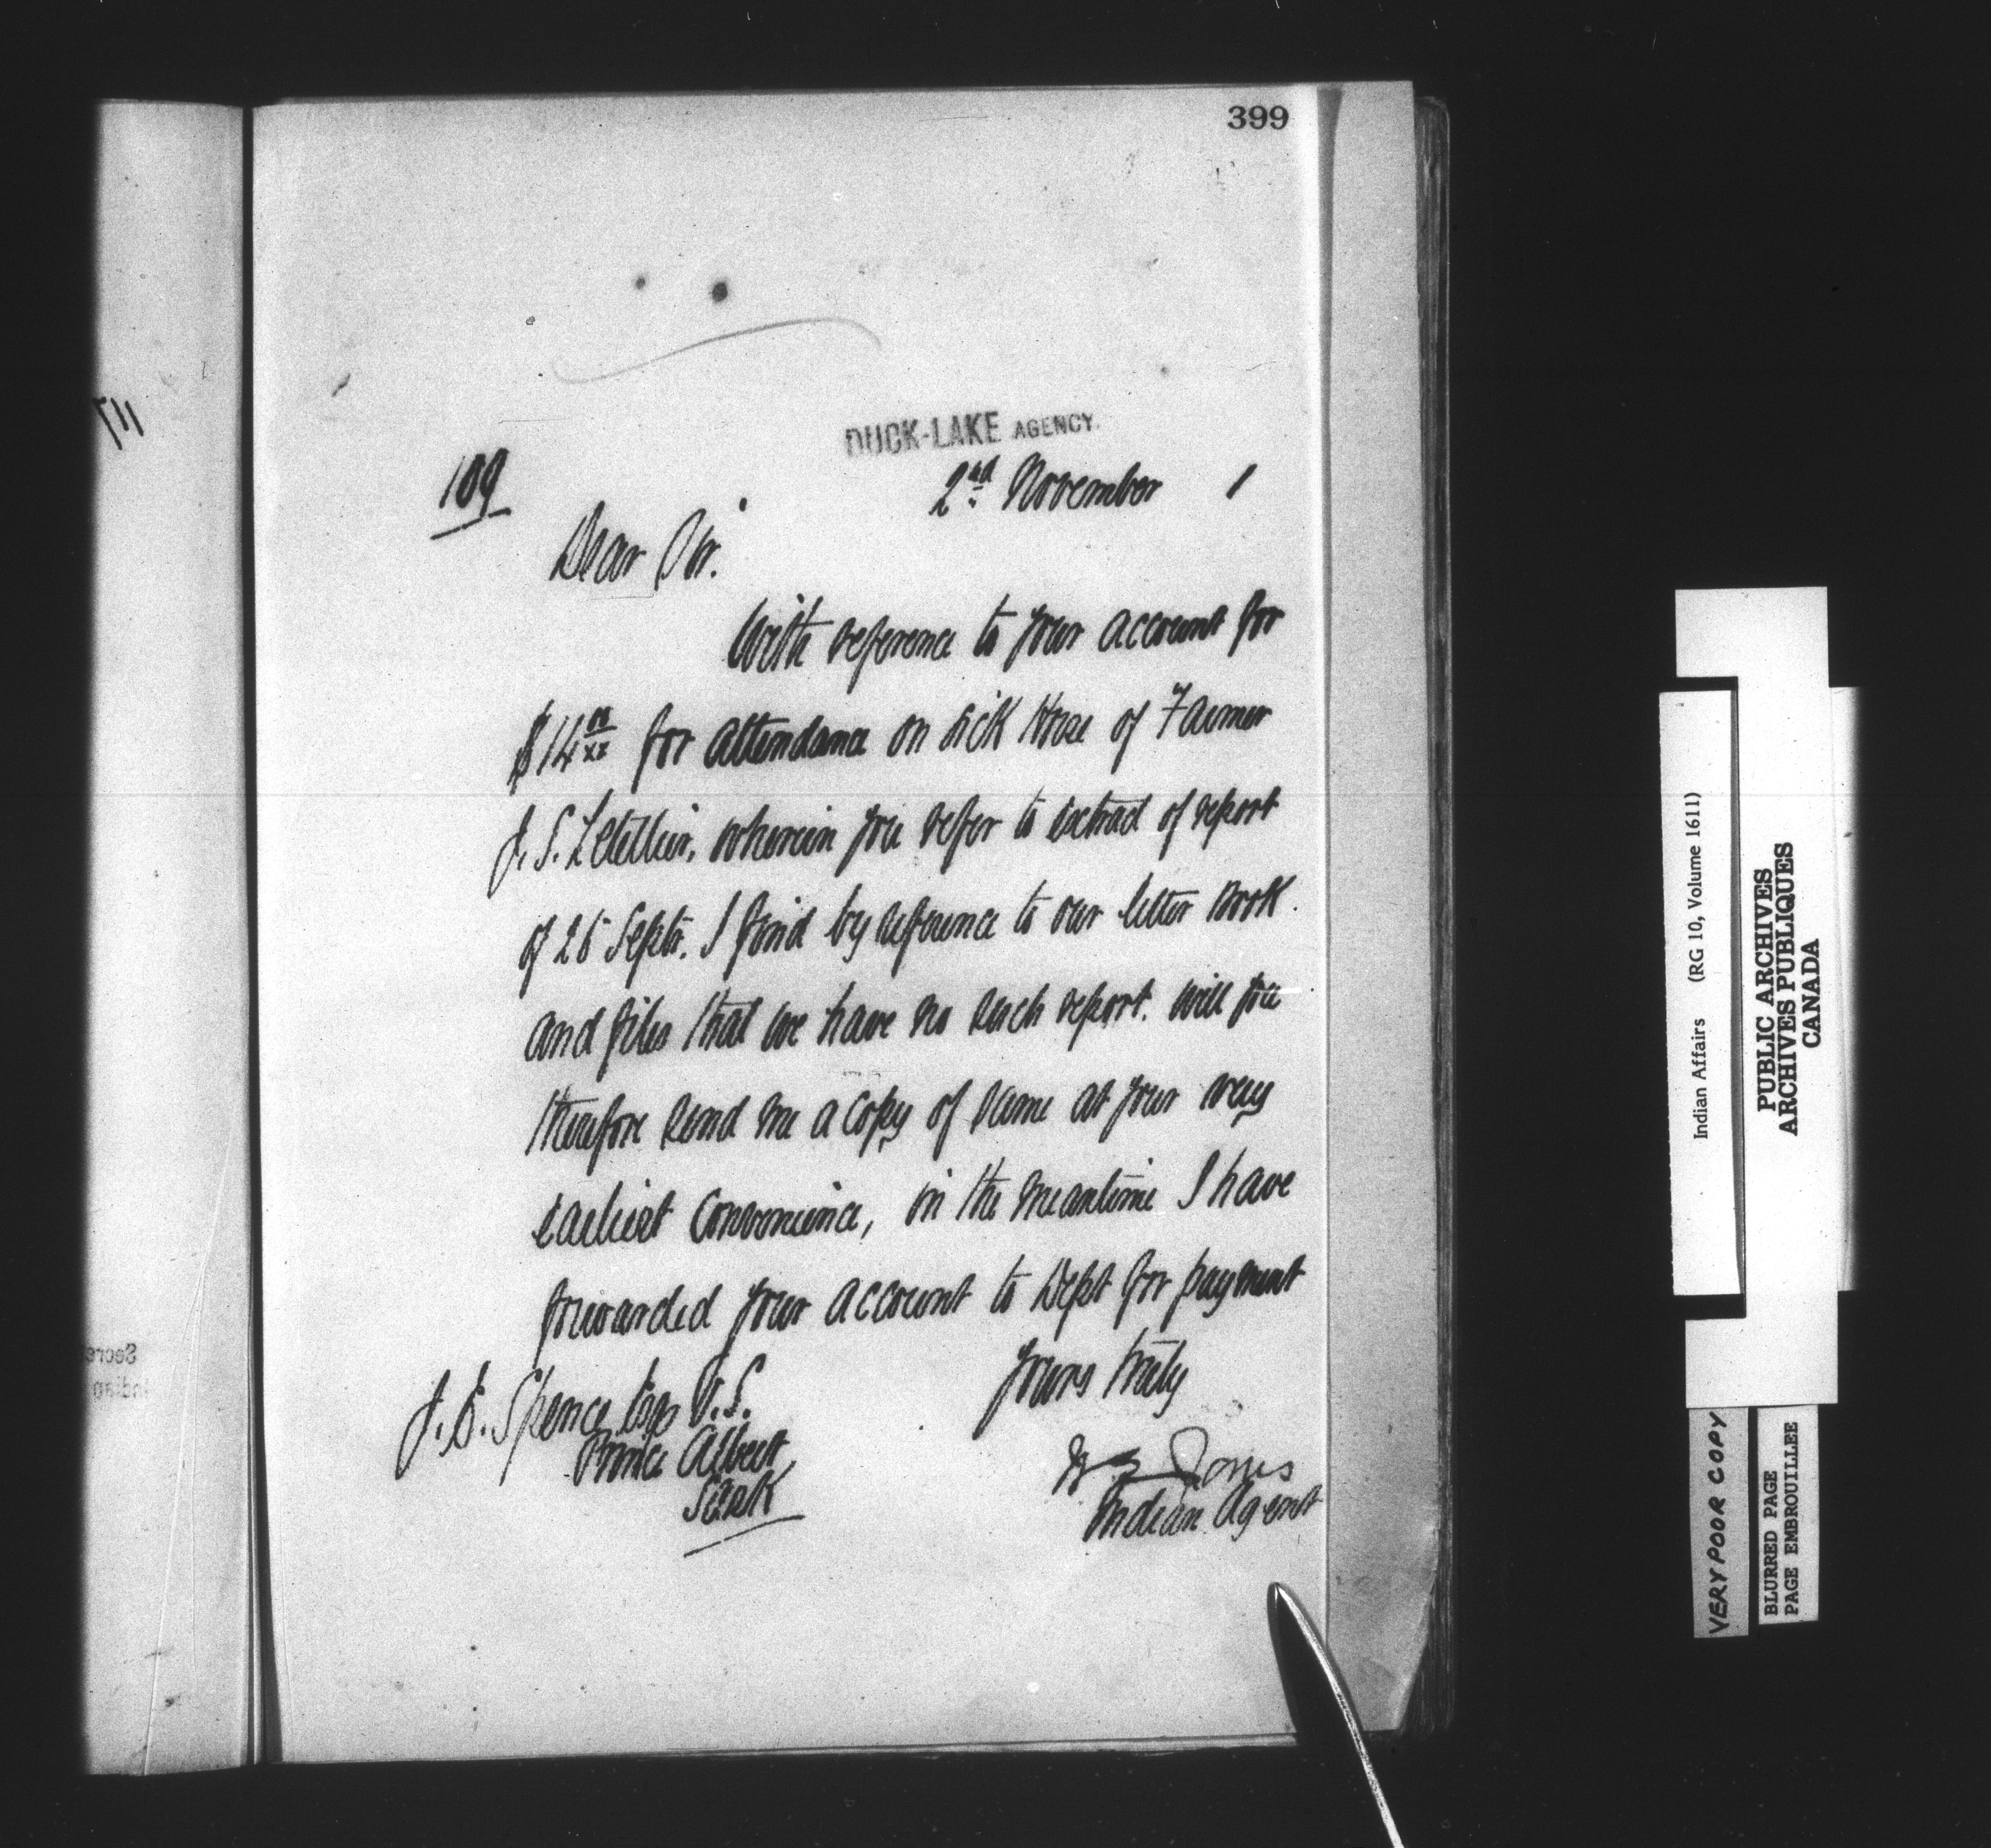 399
DUCK-LAKE AGENCY.
109
2nd November 1
Dear Sir.
With reference to your account for
$14 00/xx for attendance on sick Horse of Farmer
J. S. Letellier, wherein you refer to extract of report
of 26 Septr. I find by reference to our letter Book
and files that we have no such report. Will you
therefore send me a copy of same at your very
earliest convenience, in the meantime I have
forwarded your account to Dept for payment
Yours truly
Jones
Indian Agent
J. E. Spence Esq V.S.
Prince Albert,
Sask
Indian Affairs (RG 10, Volume 1611)
PUBLIC ARCHIVES
ARCHIVES PUBLIQUES
CANADA
VERY POOR COPY
BLURRED PAGE
PAGE EMBROUILLEE